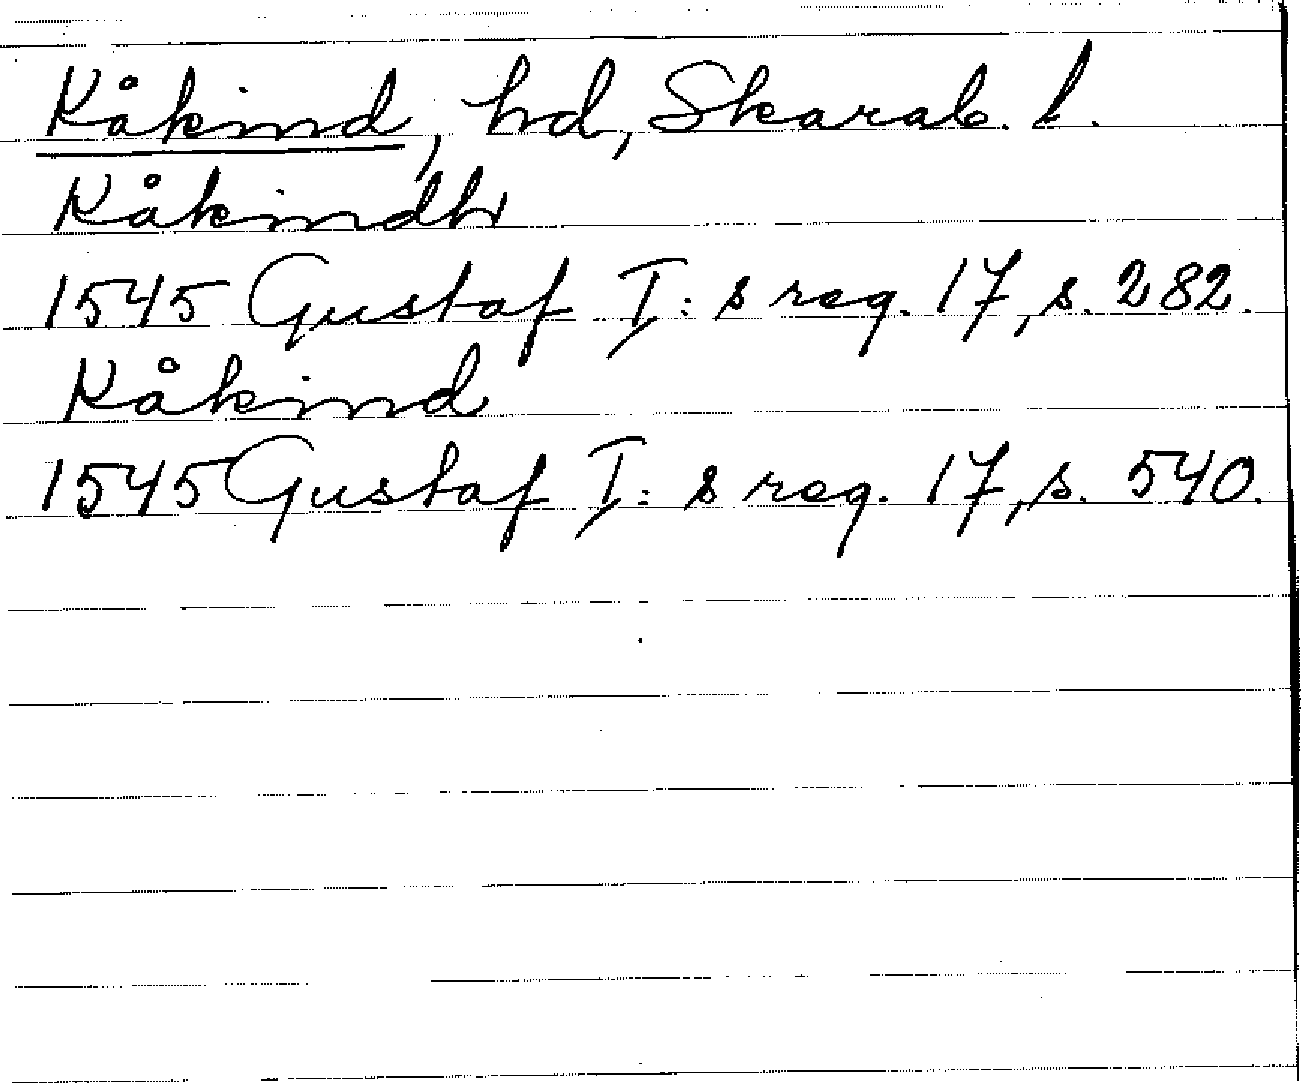 Kåkind, hd, Skarab. l.
Kåkindh
1545 Gustaf I: s reg. 17, s. 282.
Kåkind
1545 Gustaf I: s reg. 17, s. 540.